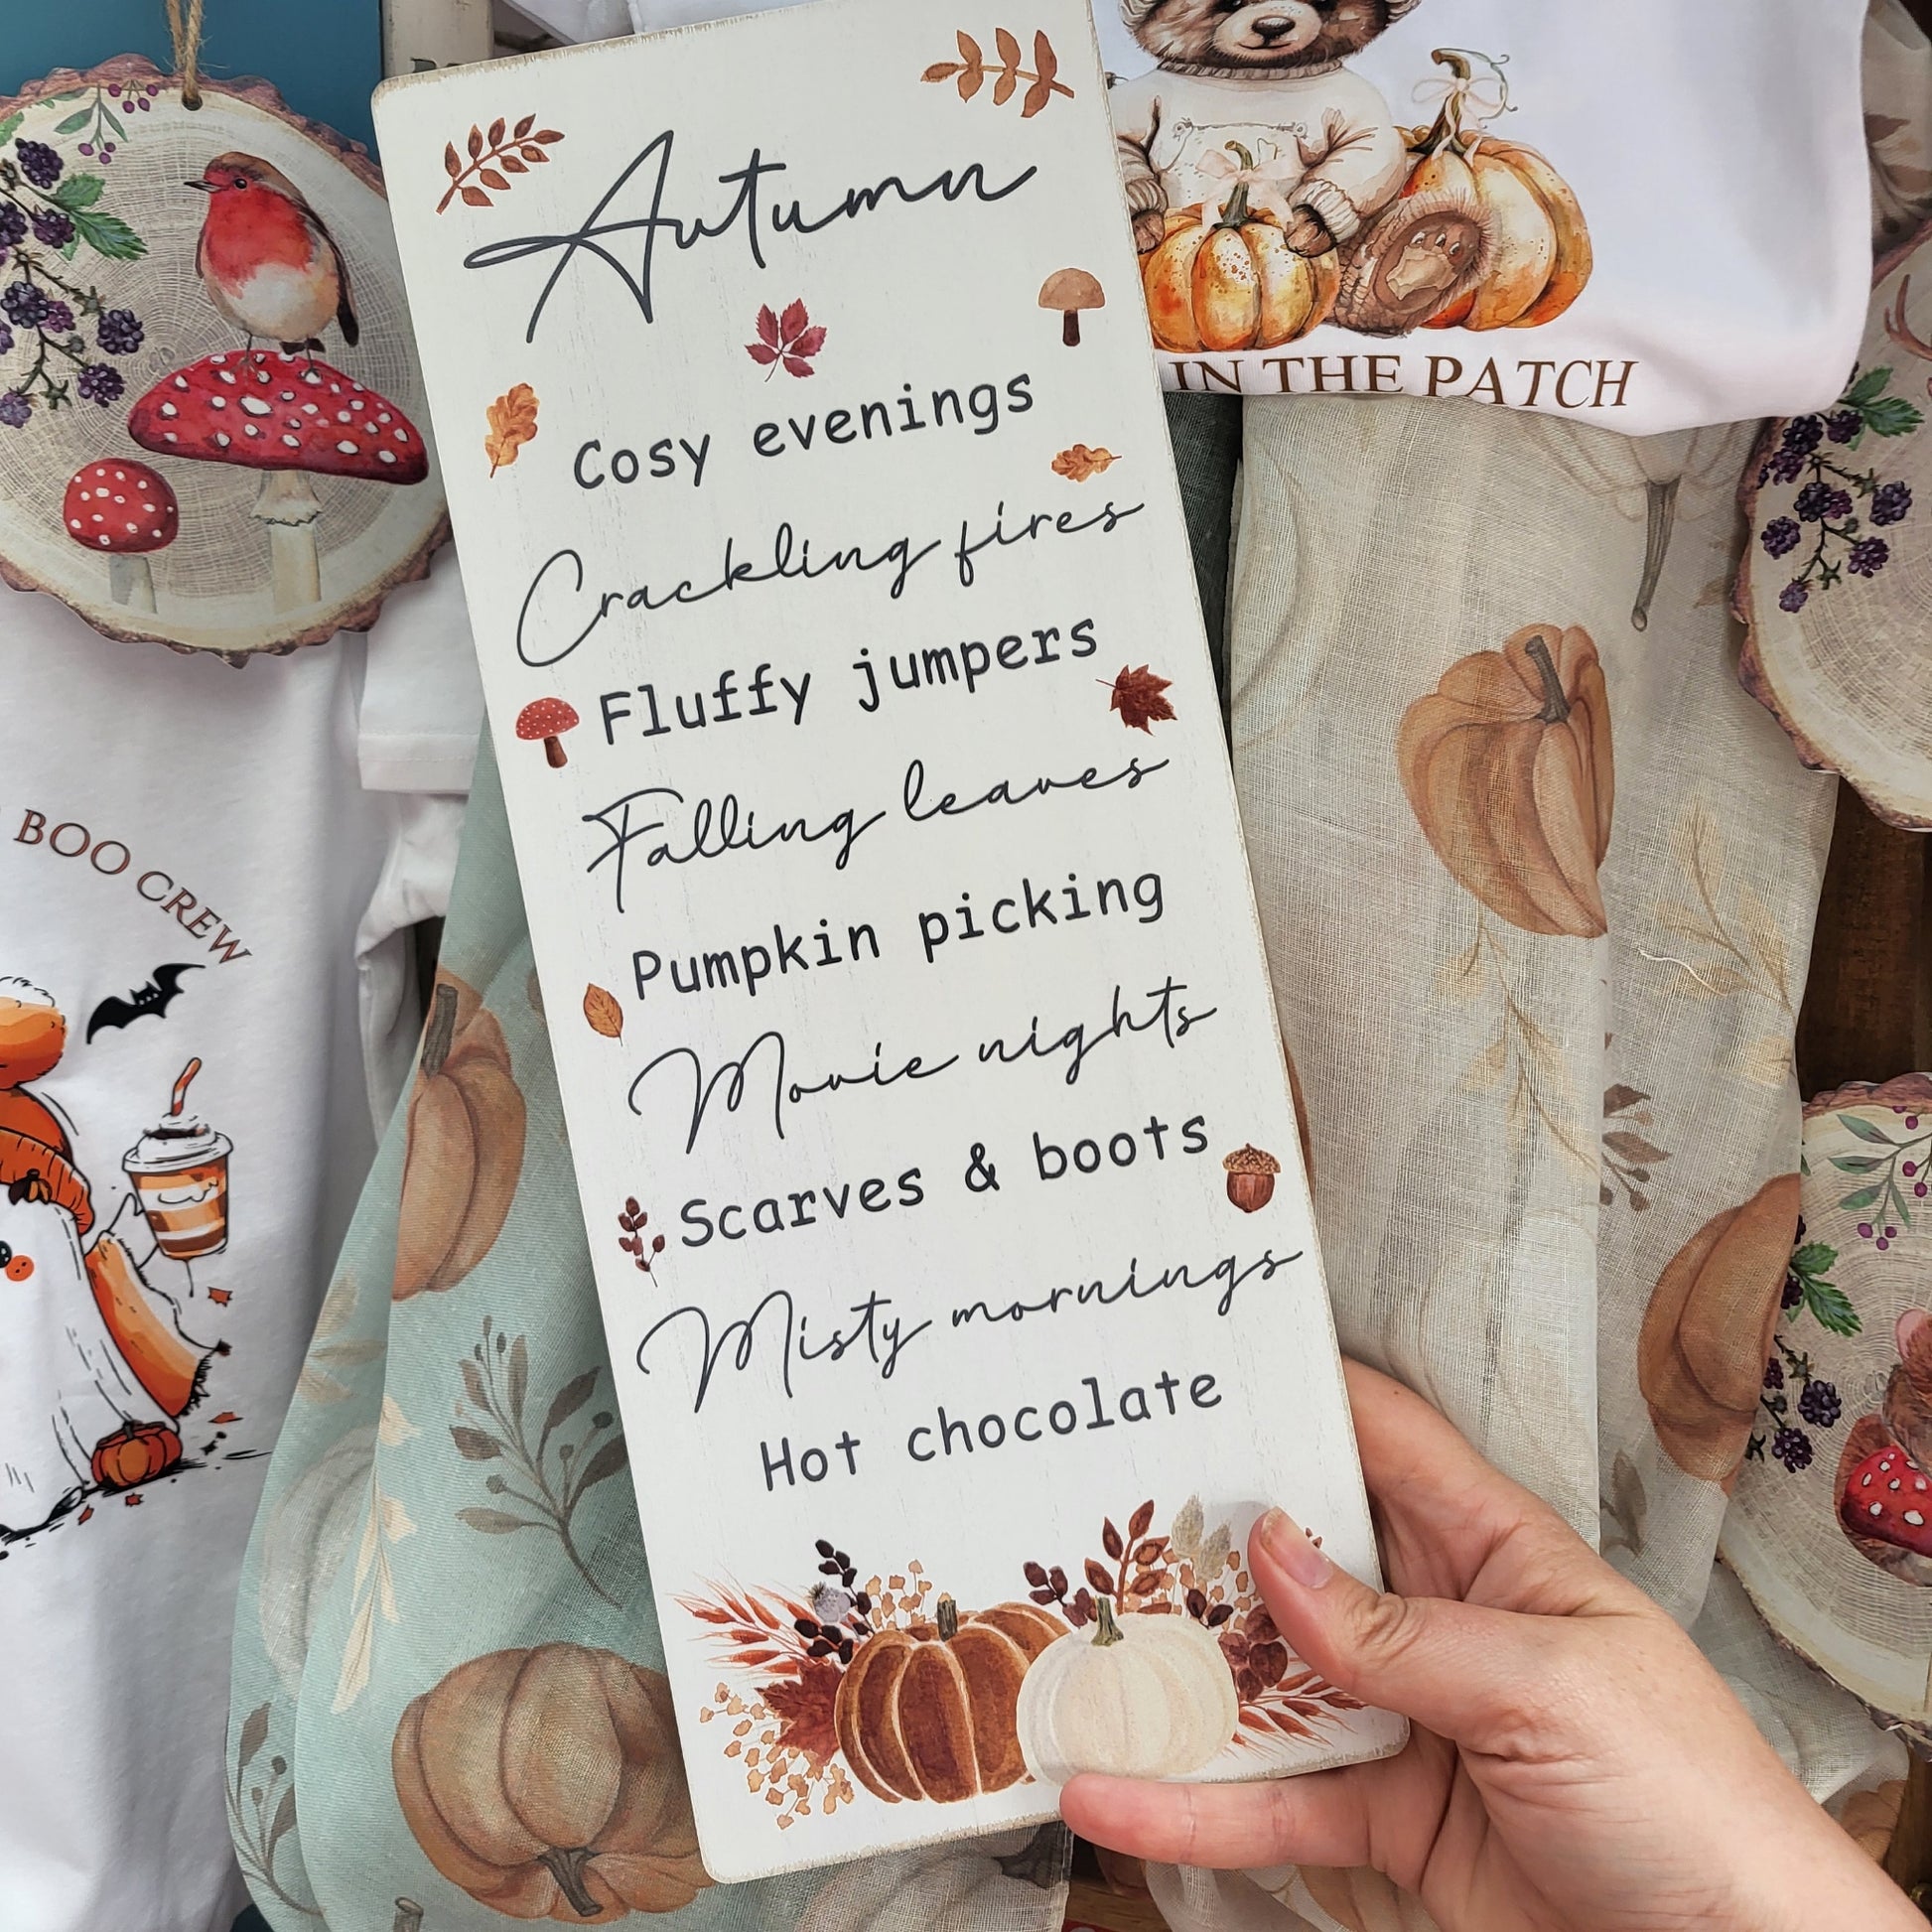 Autumn
Cosy evenings
Crackling fires
Fluffy jumpers
Falling leaves
Pumpkin picking
Movie nights
Scarves & boots
Misty mornings
Hot chocolate
IN THE PATCH
BOO CREW